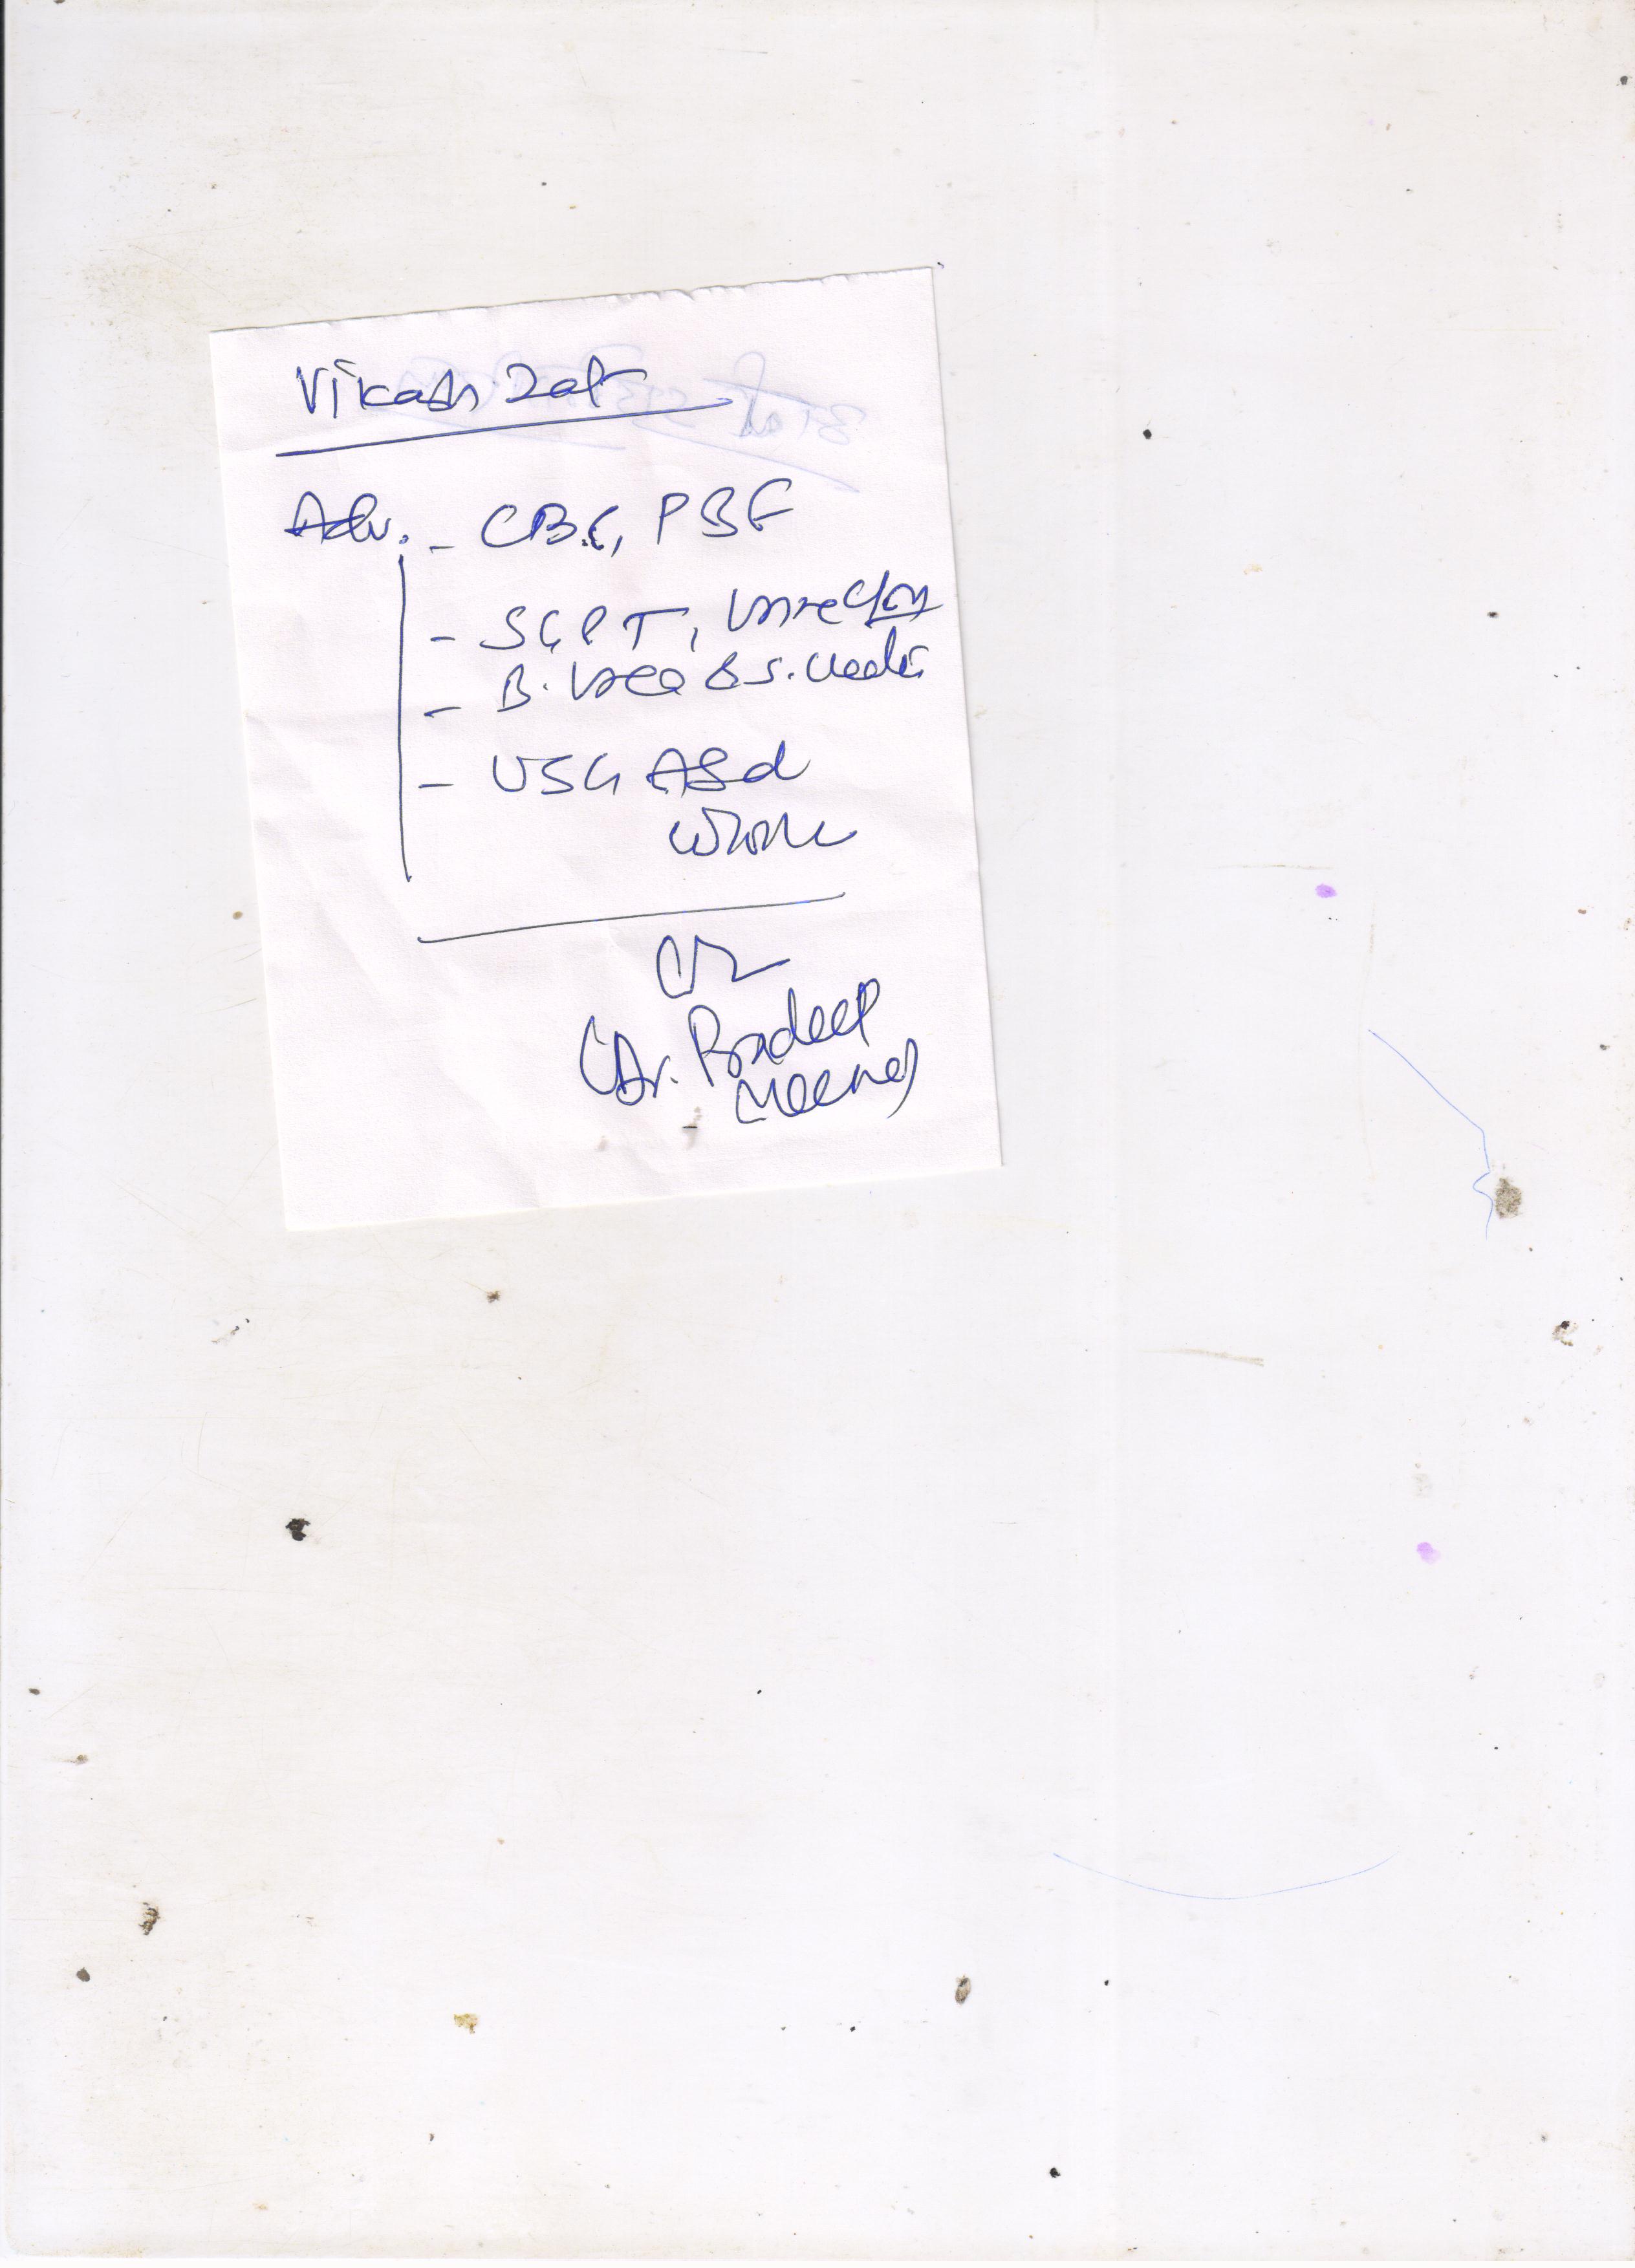 Vikash Jat
Adv. - CBC, PBF
- SGPT, Urine C/m
- B. Urea & S. Creati
- USG Abd
Whole
(Dr. Pradeep
Meena)